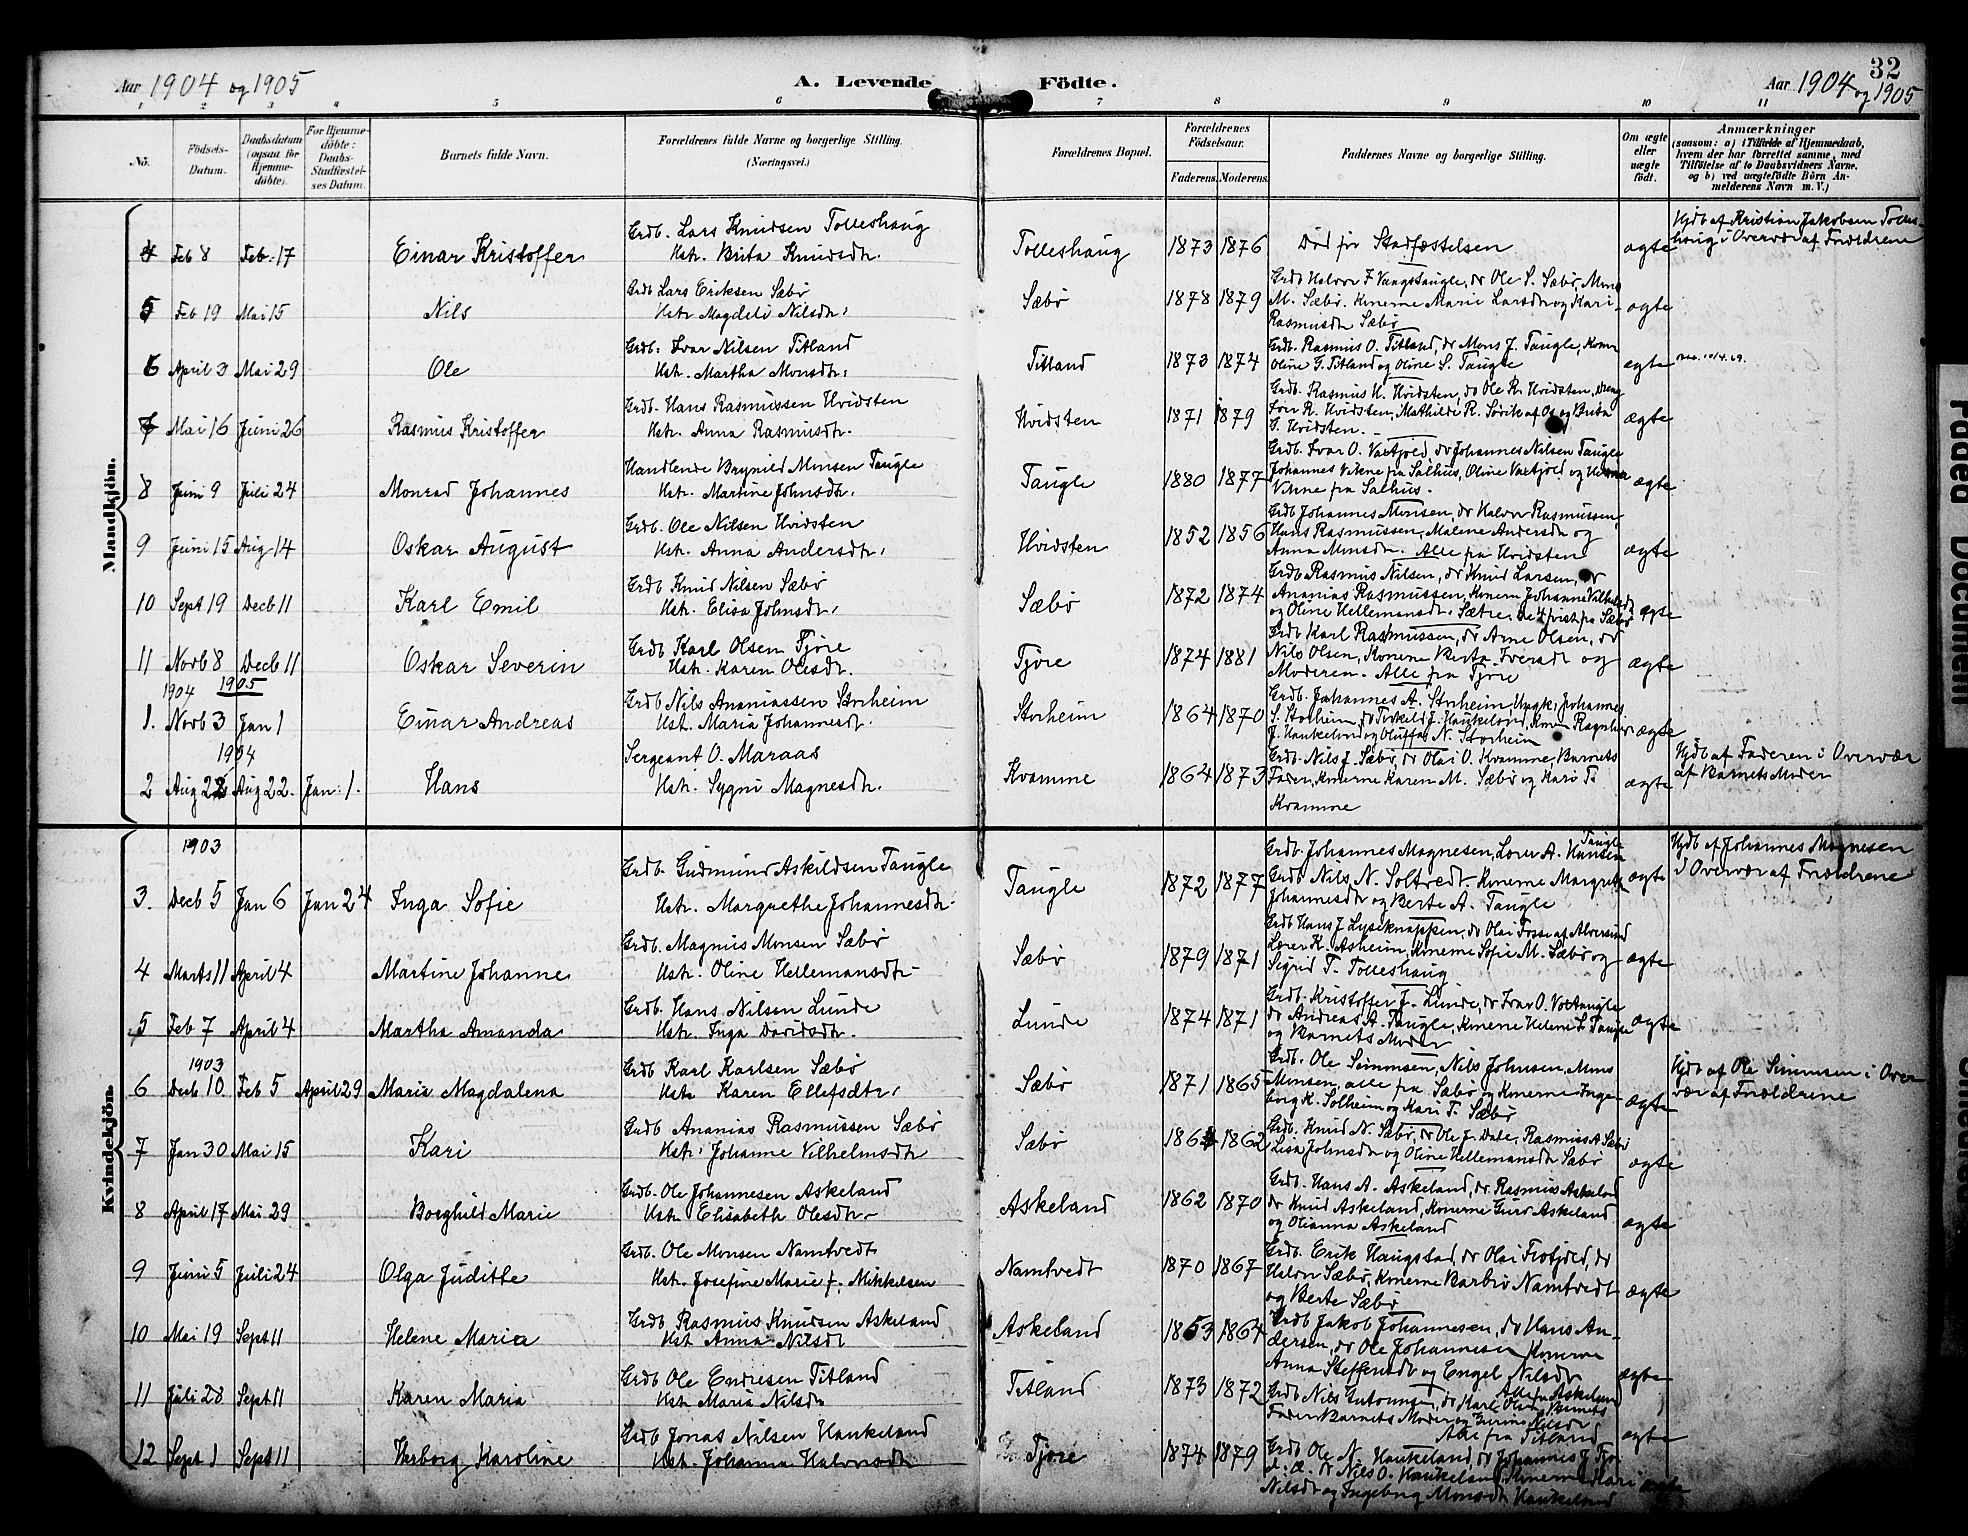 32
Aar 1904 og 1905 A. Levende Födte. Aar 1904 og 1905
1 2 3 4 5 6 7 8 9 10 11
No. Födsels-Datum. Daabsdatum (ogsaa for Hjemme-döbte). For Hjemme-döbte: Daabs-Stadfæstel-ses Datum. Barnets fulde Navn. Forældrenes fulde Navne og borgerlige Stilling. (Næringsvei.) Forældrenes Bopæl. Forældrenes Födselsaar. Faderens. Moderens. Faddernes Navne og borgerlige Stilling. Om ægte eller uægte födt. Anmærkninger
(saasom: a) i Tilfælde af Hjemmedaab, hvem der har forrettet samme, med Tilföielse af to Daabsvidners Navne, og b) ved uægtefödte Börn An-melderens Navn m. V.)
Mandkjön.
4 Feb 8 Feb. 17 Einar Kristoffer Grdb. Lars Knudsen Tolleshaug
Hstr. Brita Knudsdtr. Tolleshaug 1873 1876 Død før Stadfæstelsen ægte Hjdb af Kristian Jakobsen Tolles-
haug i Overvær af Forældrene
5 Feb 19 Mai 15 Nils Grdb Lars Eriksen Sæbø
Hstr Magdeli Nilsdtr. Sæbø 1878 1879 Grdb Halvor F. Vangstaugle, do Ole S. Sæbø, Mons
M. Sæbø. Konerne Marie Larsdtr og Kari
Rasmusdtr Sæbø ægte
6 April 3 Mai 29 Ole Grdb. Ivar Nilsen Titland
Hstr. Martha Monsdtr. Titland 1873 1874 Grdb. Rasmus O. Titland, do Mons J. Taugle, Kone
Oline G. Titland og Oline S. Taugle ægte
7 Mai 16 Juni 26 Rasmus Kristoffer Grdb. Hans Rasmussen Hvidsten
Hstr. Anna Rasmusdtr. Hvidsten 1871 1879 Grdb. Rasmus H. Hvidsten, do Ole R. Hvidsten, Dreng
R. Hvidsten, Mathilde R.
G. Hvidsten. ægte
8 Juni 9 Juli 24 Monrad Johannes Handlende Brynild Monsen Taugle
Hstr. Martine Johnsdtr. Taugle 1880 1877 Grdb. Ivar O. do Johannes Nilsen Taugle
Johannes Vikne fra Salhus, Oline og
Vikne fra Salhus. ægte
9 Juni 15 Aug 14 Oskar August Grdb. Ole Nilsen Hvidsten
Hstr. Anna Andersdtr. Hvidsten 1852 1856 Grdb Johannes Monsen, do Halvor Rasmussen,
Hans Rasmussen, Malene Andersdtr og
Anna Monsdtr. Alle fra Hvidsten ægte
10 Sept 19 Decb 11 Karl Emil Grdb Knud Nilsen Sæbø
Hstr. Elisa Johnsdtr. Sæbø 1872 1874 Grdb Rasmus Nilsen, do Knud Larsen, do
Ananias Rasmussen, Konerne Johanne Vilhelmsdtr
og Oline Hellemansdtr. Sætre. De 4 første fra Sæbø ægte
11 Novb 8 Decb 11 Oskar Severin Grdb Karl Olsen Fjøre
Hstr. Karen Olesdtr. Tjøre 1874 1881 Grdb Karl Rasmussen, do Arne Olsen, do
Nils Olsen, Konerne Berta Iversdtr og
Moderen. Alle fra Tjøre ægte
1904 1905
1. Novb 3 Jan 1 Einar Andreas Grdb Nils Ananiassen Storheim
Hst. Maria Johannesdtr. Storheim 1864 1870 Grdb. Johannes A. Storheim, Ungk. Johannes
S. Storheim, do Torkild J. Haukeland, Kone Ragnhild
J. Haukeland og Oluffa N. Storheim ægte
1904
2 Aug 22 Aug 22. Jan: 1. Hans Sergeant O. Maraas
Hstr. Sygni Magnesdtr. Kvamme 1864 1873 Grdb. Nils J. Sæbø, do Olai O. Kvamme, Barnets
Fader, Konerne Karen M. Sæbø og Kari T.
Kvamme ægte Hjdb af Faderen i Overvær
af Barnets Moder
Kvindekjön.
1903
3. Decb 5 Jan 6 Jan 24 Inga Sofie Grdb. Gudmund Askildsen Taugle
Hstr. Margrethe Johannesdtr. Taugle 1872 1877 Grdb. Johannes Magnesen, Lærer A. Hansen Taugle
Grdb Nils N. Soltvedt. Konerne Margrethe
Johannesdtr og Berte A. Taugle ægte Hjdb af Johannes Magnesen
i Overvær af Forældrene
4 Marts 11 April 4 Martine Johanne Grdb. Magnus Monsen Sæbø
Hstr. Oline Hellemansdtr. Sæbø 1879 1871 Grdb Hans J. Lyseknappen, do Olai Fosse af Alversund
Lærer K. Asheim, Konerne Sofie M. Sæbø og
Sigrid T. Tolleshaug ægte
5 Feb 7 April 4 Martha Amanda Grdb. Hans Nilsen Lunde
Hstr. Inga Davidsdtr. Lunde 1874 1871 Grdb. Kristoffer J. Lunde, do Ivar O.
do Andreas A. Taugle, Konerne Helene L. Taugle
og Barnets Moder ægte
1903
6 Decb 10 Feb 5 April 29 Maria Magdalena Grdb Karl Karlsen Sæbø
Hstr Karen Ellefsdtr. Sæbø 1871 1865 Grdb. Ole Simonsen, Nils Johnsen, Mons
Monsen, alle fra Sæbø og Konerne Inge-
borg K. Solheim og Kari T. Sæbø ægte Hjdb af Ole Simonsen i Over
vær af Forældrene
7 Jan 30 Mai 15 Kari Grdb Ananias Rasmussen Sæbø
Hstr. Johanne Vilhelmsdtr Sæbø 1862 Grdb. Knud N. Sæbø, do Ole J. Dale, Rasmus A Sæbø
Lisa Johnsdtr og Oline Hellemansdtr Sæbø ægte
8 April 17 Mai 29 Borghild Marie Grdb. Ole Johannesen Askeland
Hstr Elisabeth Olesdtr. Askeland 1862 1870 Grdb. Hans A. Askeland, do Rasmus Askeland
do Knud Askeland, Konerne Guro Askeland
og Olianna Askeland ægte
9 Juni 5 Juli 24 Olga Juditte Grdb. Ole Monsen Namtvedt
Hstr. Josefine Marie f. Mikkelsen Namtvedt 1870 1867 Grdb. Erik Haugstad, do Olai Frotjold, do
Halvor Sæbø, Konerne Barbro Namtvedt
og Berte Sæbø ægte
10 Mai 19 Sept 11 Helene Maria Grdb. Rasmus Knudsen Askeland
Hst Anna Nilsdtr Askeland 1853 1864 Grdb Jakob Johannesen, do Hans An-
dersen, do Ole Johannesen Konerne
Anna Steffensdtr og Engel Nilsdtr
Alle fra Askeland ægte
11 Juli 28 Sept 11 Karen Maria Grdb Ole Endresen Titland
Hst Maria Nilsdtr Titland 1873 1872 Grdb Nils Guttormsen, do Karl Olsen, Barnets
Fader Barnets Moder og Gurine Nilsdtr
Alle fra Titland ægte
12 Sept 1 Sept 11 Herborg Karoline Grdb Jonas Nilsen Haukeland
Hst. Johanna Halvorsdtr Tjøre 1874 1879 Grdb Ole N. Haukeland, do Johannes J Tjø-
do Nils O. Haukeland, Konerne Mari
Nilsdtr og Ingeborg Monsdtr Haukeland ægte
Faded Document